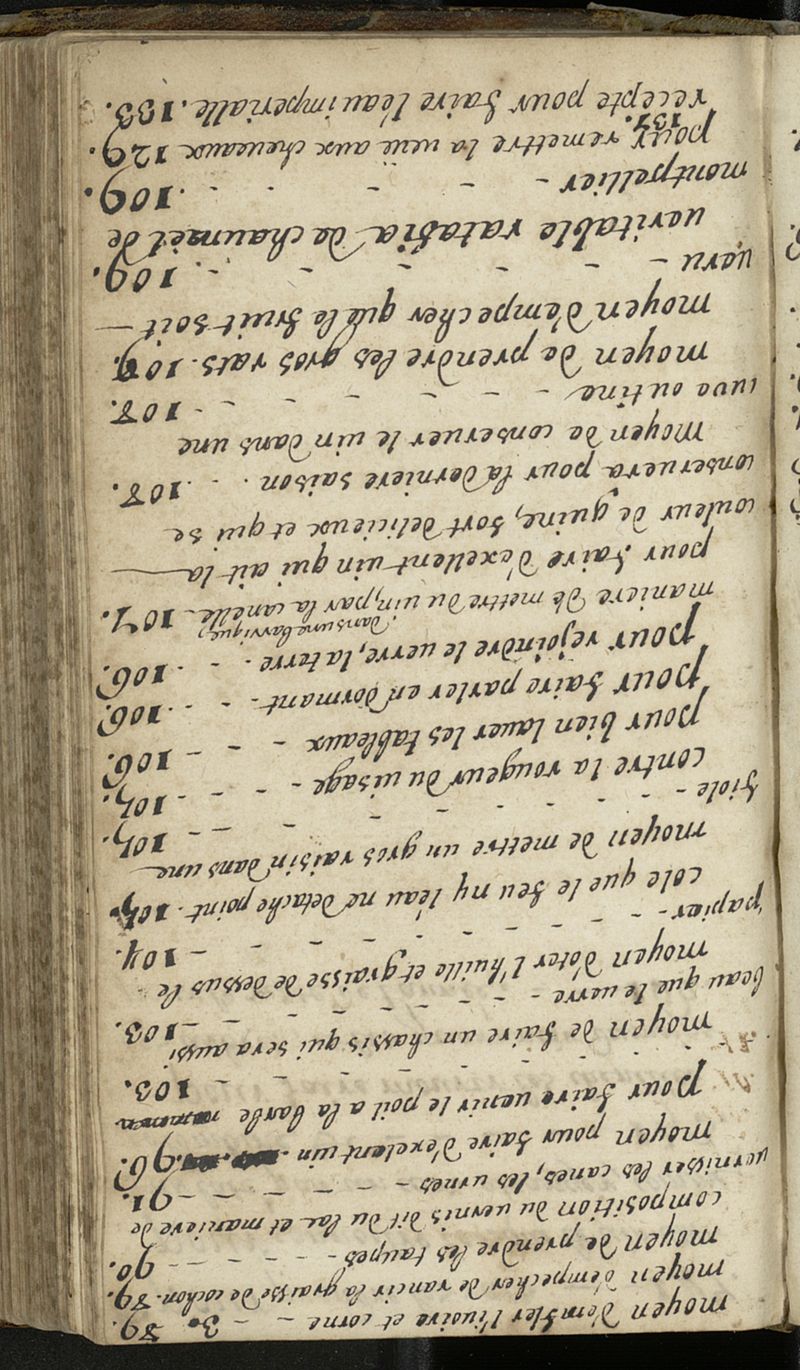 moyen d'emêler l'iuoire et corne - - 89.
moyen d'empecher de rancir la graisse de cochon. 89.
moyen de prendre les taupes - - - - - 90.
composition du uernis dit du lac et maniere de
uernisser les canes, les urnes - - - - - 91.
moyen pour faire d'exelent uin 96.
pour faire uenir le poil a la barbe
- - - - - - 103.
moyen de faire un chassis qui sera aussi
beau que le uerre - - - - - - - 103.
moyen d'oter l'huille et graisse de dessus le
papier - - - - - - - - 104.
cole que le feu ny l'eau ne detache point. 104.
moyen de mettre un gros raisin dans une
fiole - - - - - - - - 105.
contre la rougeur du uisage - - - - 105.
pour bien lauer les tableaux - - - 106.
pour faire parler en dormant - - - 106.
pour rejoindre le uerre, la terre - - - 106.
dans une barrique
maniere de mettre du uin, par la canelle 107.
pour faire d'exellent uin qui ait la
couleur de guine, fort delicieux et qui se
conseruera pour la derniere saison - - 108.
moyen de conseruer le uin dans une
cuue ou tine - - - - - - 108.
moyen de prendre les gros rats. 109.
moyen d'empecher que le fruit soit
ueru - - - - - - 109.
ueritable ratafia de chaumet de
montpellier - - - - - 109.
pour remettre la ueüe aux cheuaux 129.
131.
recepte pour faire l'eau imperialle. 133.